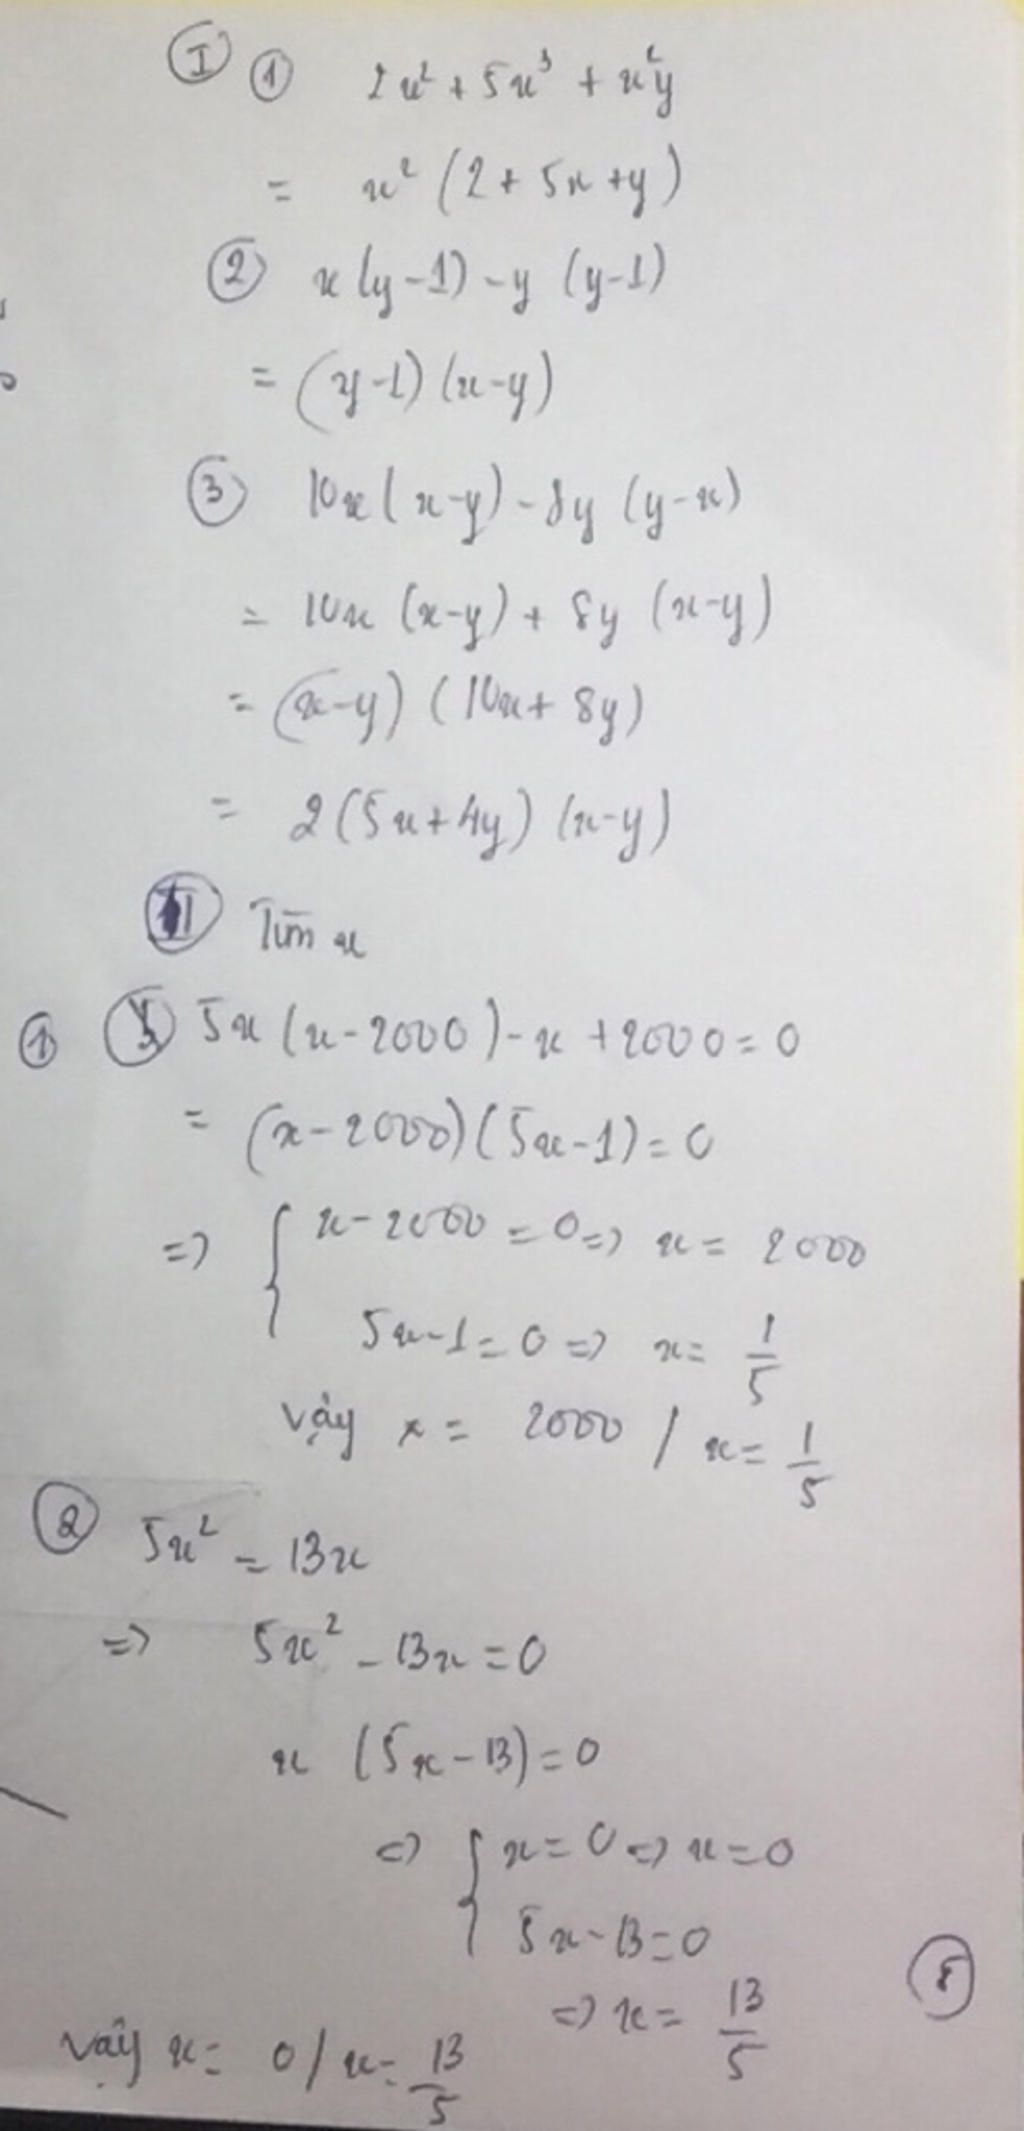 I ① 2x² + 5x³ + x²y
= x² (2 + 5x + y)
② x(y-1) - y (y-1)
= (y-1) (x-y)
③ 10x (x-y) - 8y (y-x)
= 10x (x-y) + 8y (x-y)
= (x-y) (10x + 8y)
= 2 (5x + 4y) (x-y)
II Tìm x
① 5x (x - 2000) - x + 2000 = 0
= (x - 2000) (5x - 1) = 0
=> { x - 2000 = 0 => x = 2000
5x - 1 = 0 => x = 1/5
Vậy x = 2000 / x = 1/5
② 5x² = 13x
=> 5x² - 13x = 0
x (5x - 13) = 0
=> { x = 0 => x = 0
5x - 13 = 0
=> x = 13/5
Vậy x = 0 / x = 13/5